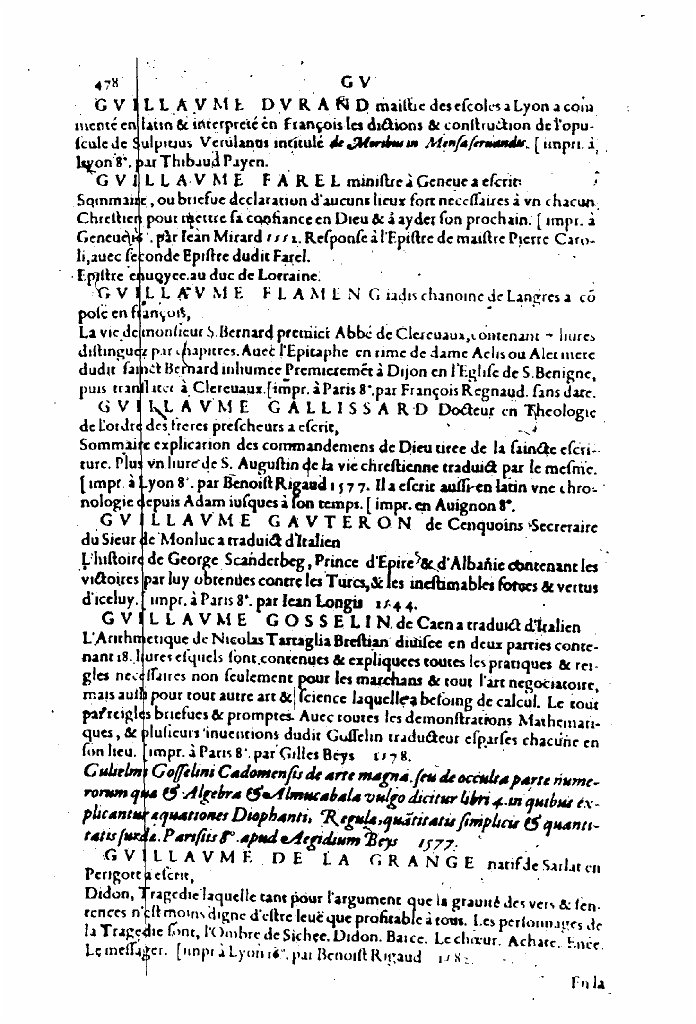 478 GV
GVILLAVME DVRAND maistre des escoles a Lyon a com
menté en latin & interpreté en François les dictions & construction de l'opu-
scule de Sulpitius Verulanus intitulé de Moribus in Mensa seruandis. [impr. à
Lyon 8°. par Thibaud Payen.
GVILLAVME FAREL ministre à Geneue a escrit
Sommaire, ou briefue declaration d'aucuns lieux fort necessaires à vn chacun
Chrestien pour mettre sa confiance en Dieu & à ayder son prochain. [impr. à
Geneue 8°. par Iean Mirard 1552. Response à l'Epistre de maistre Pierre Caro-
li, auec seconde Epistre dudit Farel.
Epistre enuoyee au duc de Lorraine.
GVILLAVME FLAMENG iadis chanoine de Langres a cō
posé en françois,
La vie de monsieur S. Bernard premier Abbé de Clereuaux, contenant 7 liures
distinguez par chapitres. Auec l'Epitaphe en rime de dame Aelis ou Alet mere
dudit sainct Bernard inhumee Premieremēt à Dijon en l'Eglise de S. Benigne,
puis translatee à Clereuaux. [impr. à Paris 8°. par François Regnaud. sans date.
GVILLAVME GALLISSARD Docteur en Theologie
de l'ordre des freres prescheurs a escrit,
Sommaire explication des commandemens de Dieu tiree de la saincte escri-
ture. Plus vn liure de S. Augustin de la vie chrestienne traduict par le mesme.
[impr. à Lyon 8°. par Benoist Rigaud 1577. Il a escrit aussi en latin vne chro-
nologie depuis Adam iusques à son temps. [impr. en Auignon 8°.
GVILLAVME GAVTERON de Cenquoins Secretaire
du Sieur de Monluc a traduict d'Italien
L'histoire de George Scanderbeg, Prince d'Epire & d'Albanie contenant les
victoires par luy obtenues contre les Turcs, & les inestimables forces & vertus
d'iceluy. [impr. à Paris 8°. par Iean Longis 1544.
GVILLAVME GOSSELIN de Caen a traduict d'Italien
L'Arithmetique de Nicolas Tartaglia Brestian diuisee en deux parties conte-
nant 18. liures esquels sont contenues & expliquees toutes les pratiques & rei-
gles necessaires non seulement pour les marchans & tout l'art negociatoire,
mais aussi pour tout autre art & science laquelle a besoing de calcul. Le tout
par reigles briefues & promptes. Auec toutes les demonstrations Mathemati-
ques, & plusieurs inuentions dudit Gosselin traducteur esparses chacune en
son lieu. [impr. à Paris 8°. par Gilles Beys 1578.
Gulielmi Gosselini Cadomensis de arte magna, seu de occulta parte nume-
rorum qua & Algebra & Almucabala vulgo dicitur libri 4. in quibus ex-
plicantur aquationes Diophanti, Regula, quātitatis simplicis & quanti-
tatis surda. Parisiis 8°. apud Aegidium Beys 1577.
GVILLAVME DE LA GRANGE natif de Sarlat en
Perigort a escrit,
Didon, Tragedie laquelle tant pour l'argument que la grauité des vers & sen-
tences n'est moins digne d'estre leuë que profitable à tous. Les personnages de
la Tragedie sont, l'Ombre de Sichee. Didon. Barce. Le chœur. Achate. Enee.
Le messager. [impr à Lyon 16°. par Benoist Rigaud
En la